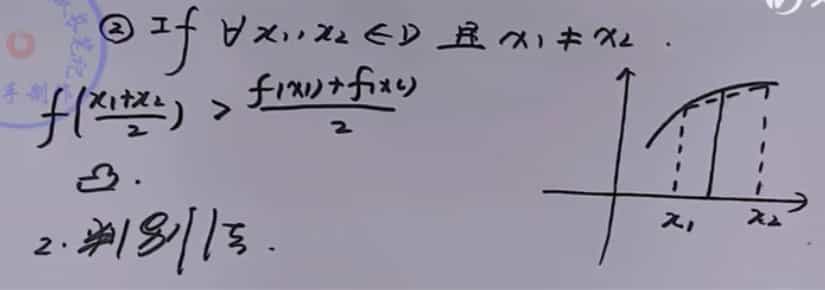 ② If ∀ x₁, x₂ ∈ D 且 x₁ ≠ x₂ .
f((x₁+x₂)/2) > (f(x₁)+f(x₂))/2
凸.
2. 判别法.
x₁ x₂